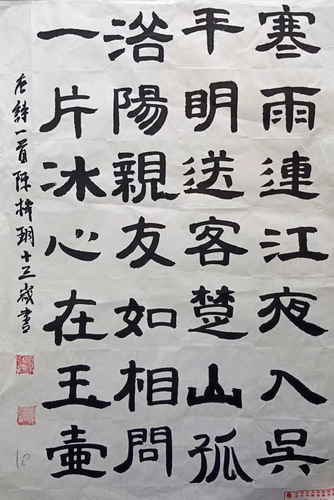 寒雨連江夜入吳
平明送客楚山孤
洛陽親友如相問
一片冰心在玉壺
唐詩一首陈梓翔十三歲書